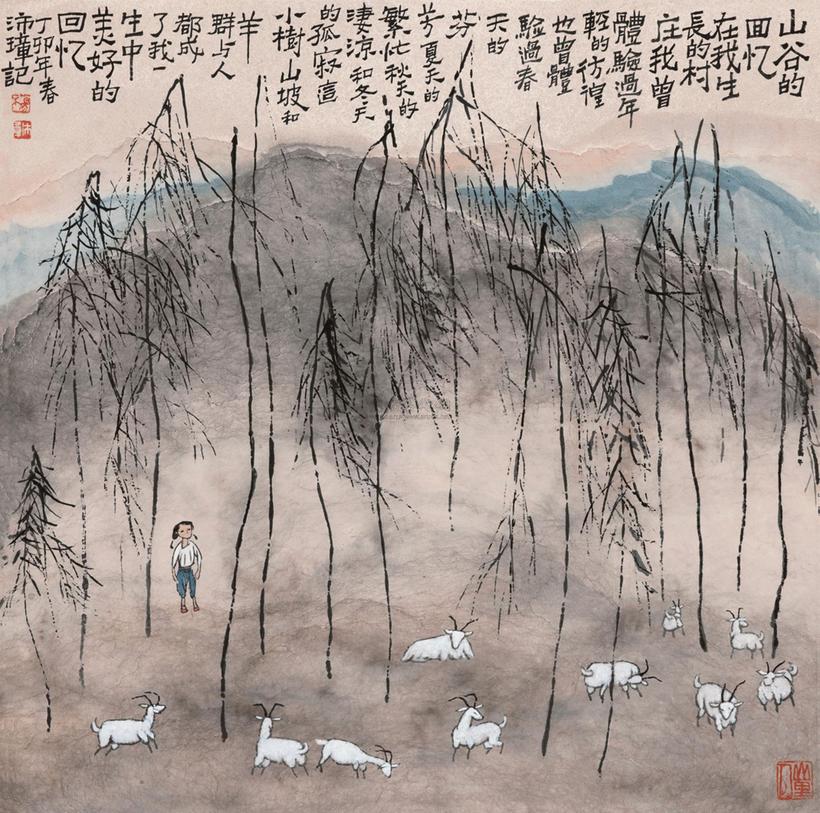 山谷的
回忆
在我生
長的村
庄我曾
體驗過年
輕的彷徨
也曾體
驗過春
天的
芬
芳夏天的
繁忙秋天的
淒涼和冬天
的孤寂這
小樹山坡和
羊
群与人
都成
了我一
生中
美好的
回忆
丁卯年春
沛璋記